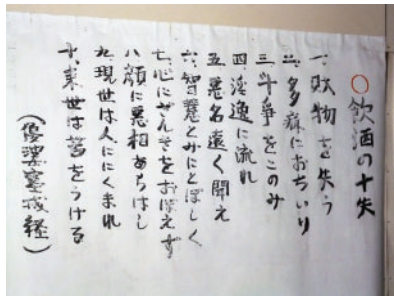 ○飲酒の十失
一、財物を失う
二、多病におちいり
三、斗争をこのみ
四、淫逸に流れ
五、悪名遠く聞え
六、智慧とみにとぼしく
七、心にざんきをおぼえず
八、顔に悪相あらはし
九、現世は人ににくまれ
十、来世は苦をうける
(優婆塞戒経)